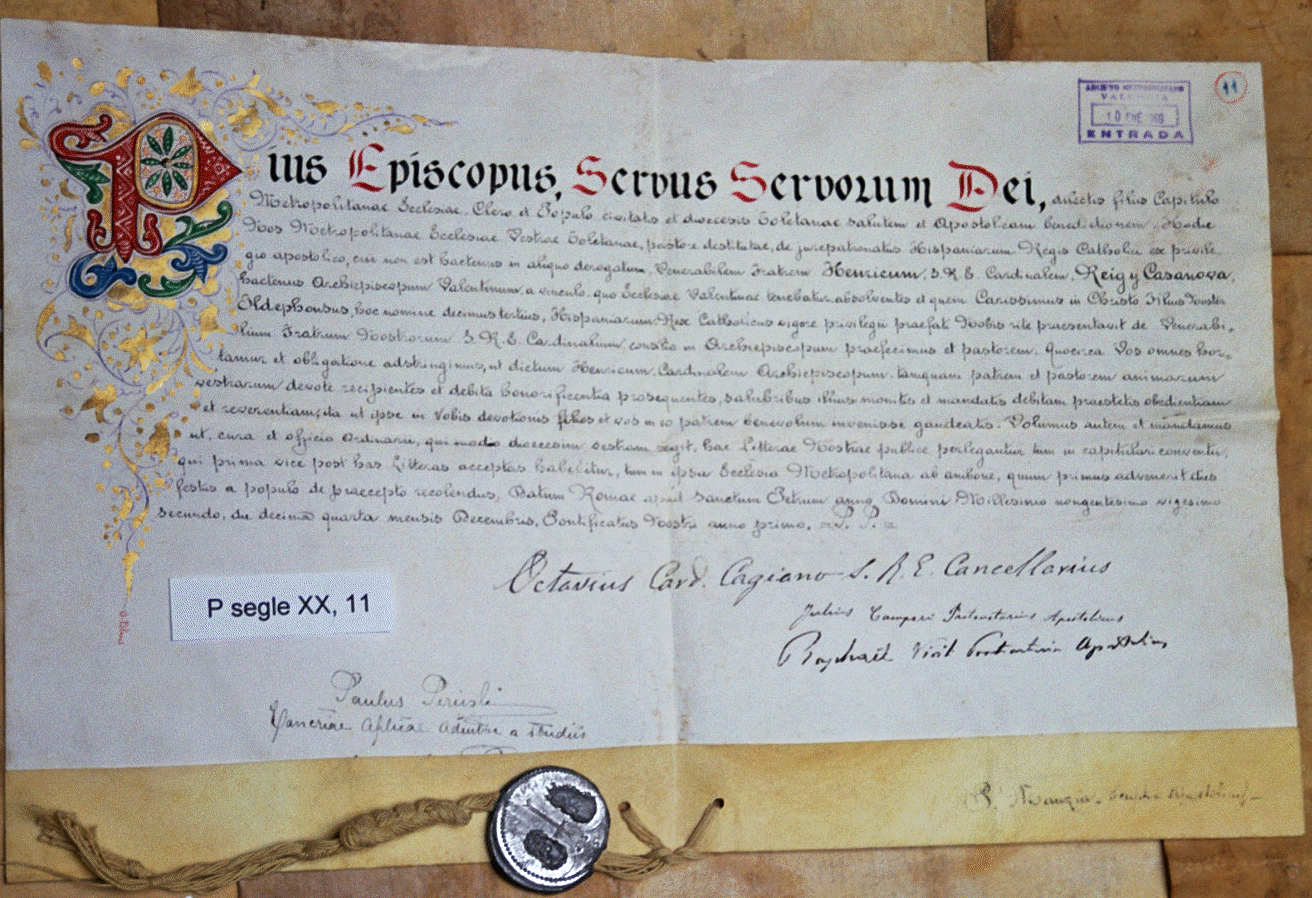 11
ARCHIVO METROPOLITANO
VALENCIA
10 ENE
ENTRADA
Pius Episcopus, Servus Servorum Dei, dilectis filiis Capitulo
Metropolitanae Ecclesiae, Clero et Populo civitatis et dioecesis Toletanae salutem et Apostolicam benedictionem. Hodie
Nos Metropolitanae Ecclesiae Vestrae Toletanae, pastore destitutae, de jurepatronatus Hispaniarum Regis Catholici ex privile-
gio apostolico, cui non est hactenus in aliquo derogatum, Venerabilem Fratrem Henricum, S. R. E. Cardinalem, Reig y Casanova,
hactenus Archiepiscopum Valentinum, a vinculo, quo Ecclesiae Valentinae tenebatur, absolventes et quem Carissimus in Christo Filius Noster
Ildephonsus, hoc nomine decimus tertius, Hispaniarum Rex Catholicus vigore privilegii praefati Nobis rite praesentavit de Venerabi-
lium Fratrum Nostrorum S. R. E. Cardinalium consilio in Archiepiscopum praefecimus et pastorem. Quocirca Vos omnes hor-
tamur et obligatione adstringimus, ut dictum Henricum Cardinalem Archiepiscopum, tamquam patrem et pastorem animarum
vestrarum devote recipientes et debita honorificentia prosequentes, salubribus illius monitis et mandatis debitam praestetis obedientiam
et reverentiam, ita ut ipse in Vobis devotionis filios et vos in eo patrem benevolum invenisse gaudeatis. Volumus autem et mandamus
ut, cura et officio Ordinarii, qui modo dioecesim vestram regit, hae Litterae Nostrae publice perlegantur tum in capitulari conventu,
qui prima vice post has Litteras acceptas habebitur, tum in ipsa Ecclesia Metropolitana ab ambone, quum primus advenerit dies
festus a populo de praecepto recolendus. Datum Romae apud Sanctum Petrum anno Domini Millesimo nongentesimo vigesimo
secundo, die decima quarta mensis Decembris, Pontificatus Nostri anno primo. P. P.
Octavius Card. Cagiano S. R. E. Cancellarius
Julius Campori Protonotarius Apostolicus
Raphaël Virili Protonotarius Apostolicus
P segle XX, 11
Paulus Pericoli
Cancriae Aplicae adiutor a studiis